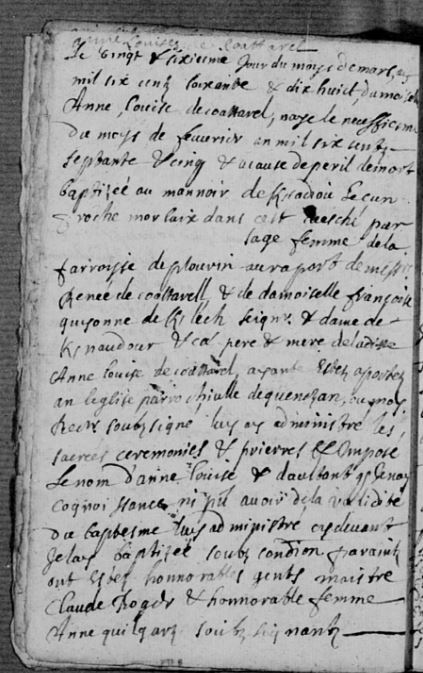 Anne Louise de Coattarel
Le vingt & sixieme Jour du moys de mars, an
mil six centz soixante & dix huict, damois
Anne, Louise de coattarel, naye le neuffiesme
du moys de feuvrier an mil six centz
septante & cinq & a cause de peril de mort
baptizée au mannoir de
proche morlaix dans cest par
sage femme de la
parroisse de plouvin au raport de
Renée de coattarell, & de damoiselle françoise
quisonne de Kslech seignr. & dame de
& ca pere & mere de ladite
Anne Louise de coattarel, ayante estez aportez
an leglise parrochialle de ou moy
Rectr soubz signé luy ay administré les
sacrees ceremonies & prierres & Impose
Le nom d'anne Louise & d'aultant
cognoissance ny pu avoir de la validité
du baptesme luy administre cydevant
Je lay baptizee soubz condion parains
ont estez honnorables gents maistre
Claude Roger & honnorable femme
Anne soubz signantz